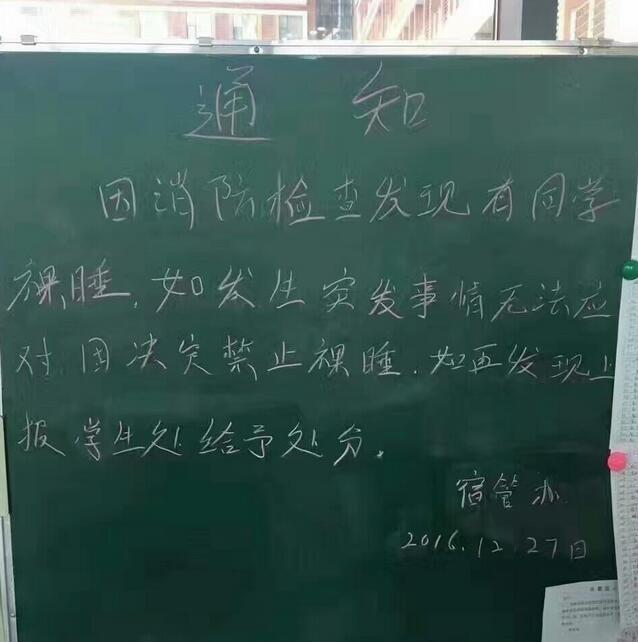 通知
因消防检查发现有同学
裸睡.如发生突发事情无法应
对因决定禁止裸睡.如再发现上
报学生处给予处分.
宿管办
2016.12.27日